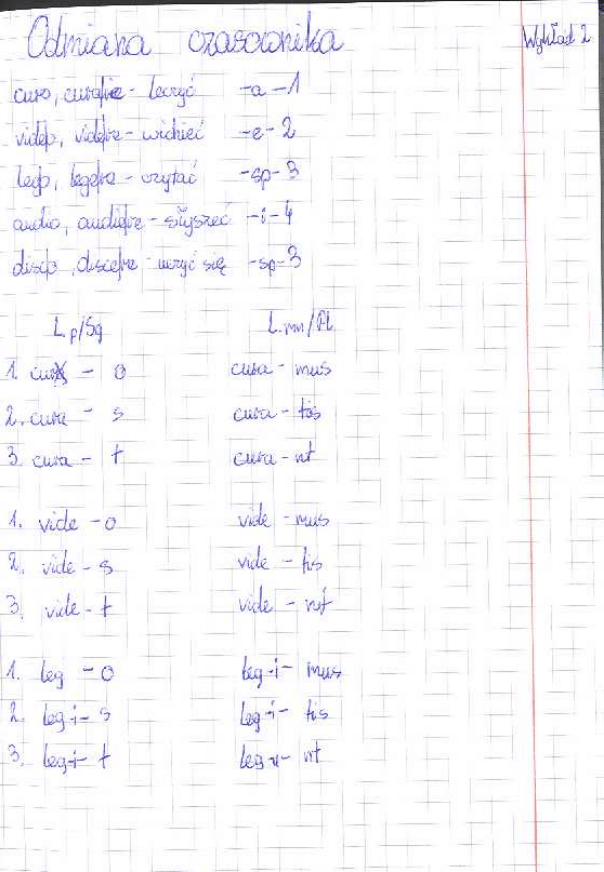 Odmiana czasownika Wykład 2
curo, curare - leczyć -a-1
video, videre - widzieć -e-2
lego, legere - czytać -sp-3
audio, audire - słyszeć -i-4
disco, discere - uczyć się -sp-3
L.p/Sg L.mn/Pl
1. cura - o cura - mus
2. cura - s cura - tis
3. cura - t cura - nt
1. vide - o vide - mus
2. vide - s vide - tis
3. vide - t vide - nt
1. leg - o leg -i- mus
2. leg -i- s leg -i- tis
3. leg -i- t leg -u- nt